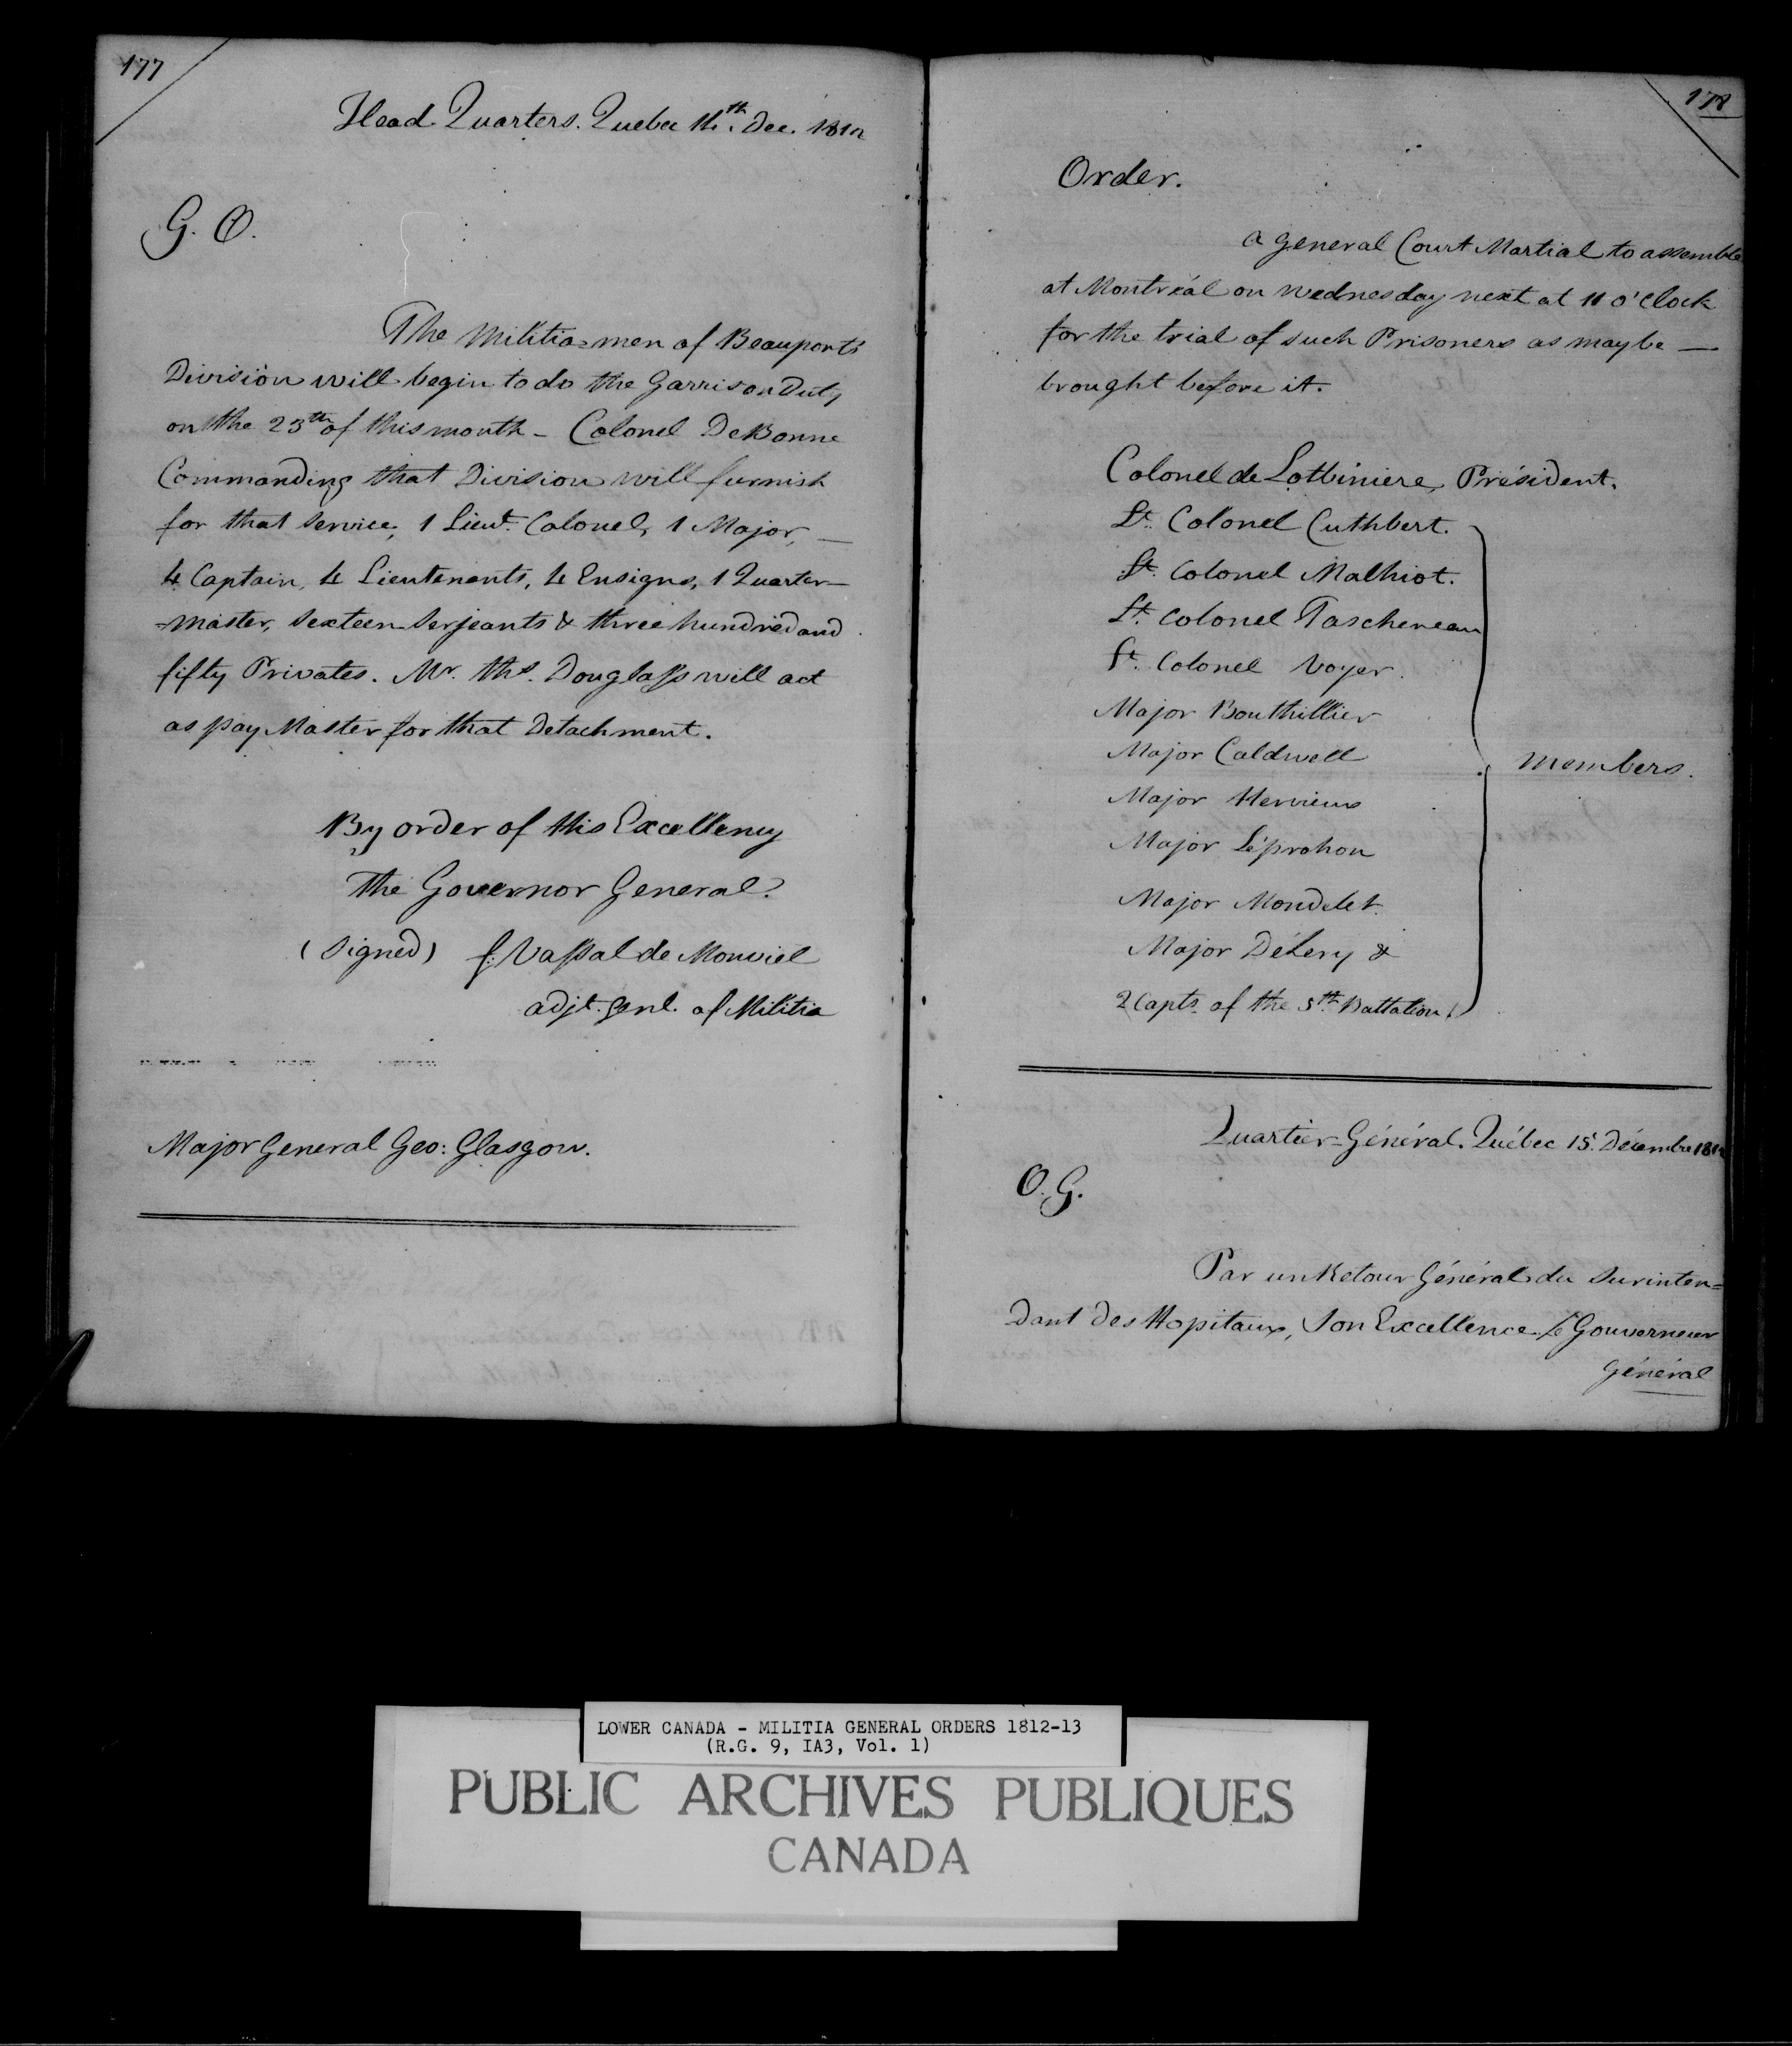 177
Head Quarters. Quebec 14th. Dec. 1812
G. O.
The Militia=men of Beauport's
Division will begin to do the Garrison Duty
on the 23th of this month - Colonel DeBonne
Commanding that Division will furnish
for that Service, 1 Lieut. Colonel, 1 Major, —
4 Captain, 4 Lieutenants, 4 Ensigns, 1 Quarter-
=master, sexteen Serjeants & three hundred and
fifty Privates. Mr. Ths. Douglass will act
as pay Master for that Detachment.
By order of His Excellency
The Governor General.
(Signed) f: Vassal de Monviel
adjt. Genl. of Militia
Major General Geo: Glasgow.
178
Order.
a General Court Martial to assemble
at Montréal on Wednesday next at 11 o'Clock
for the trial of such Prisoners as may be —
brought before it.
Colonel de Lotbiniere, Président.
Lt. Colonel Cuthbert.
Lt. Colonel Malhiot.
Lt. Colonel Taschereau
Lt. Colonel Voyer.
Major Bouthillier
Major Caldwell
members.
Major Hervieux
Major Léprohon
Major Mondelet
Major DéLery &
2 Capts. of the 5th. Battalion.
Quartier-Général. Québec 15. Décembre 1812
O. G.
Par un Retour Général du Surinten=
dant des Hopitaux, Son Excellence Le Gouverneur
Général
LOWER CANADA - MILITIA GENERAL ORDERS 1812-13
(R.G. 9, IA3, Vol. 1)
PUBLIC ARCHIVES PUBLIQUES
CANADA